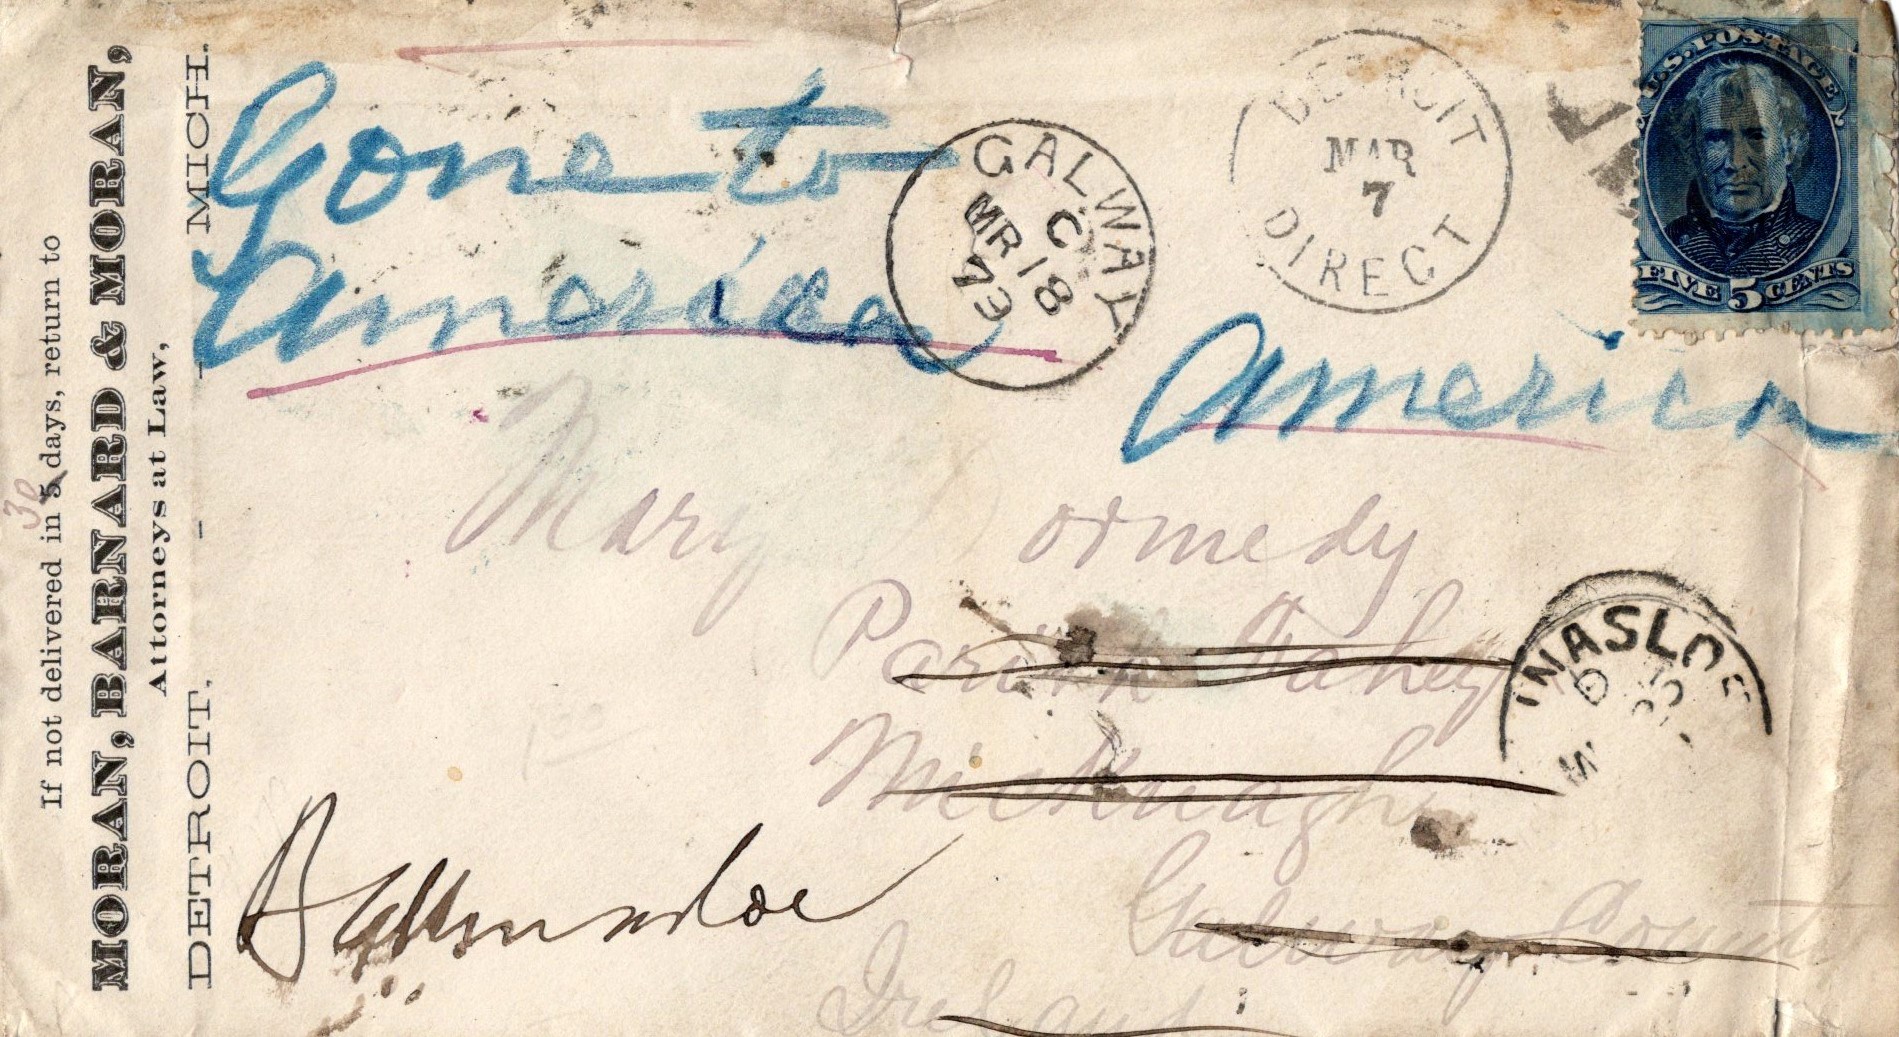 If not delivered in 5 days, return to
30
MORAN, BARNARD & MORAN,
Attorneys at Law,
DETROIT, - - MICH.
Gone to
America
GALWAY
C
MR 18
73
DETROIT
MAR
7
DIRECT
U.S. POSTAGE
FIVE 5 CENTS
America
Mary ormedy
Fahey
Galway County
Ireland
Ballinasloe
INASLOE
D